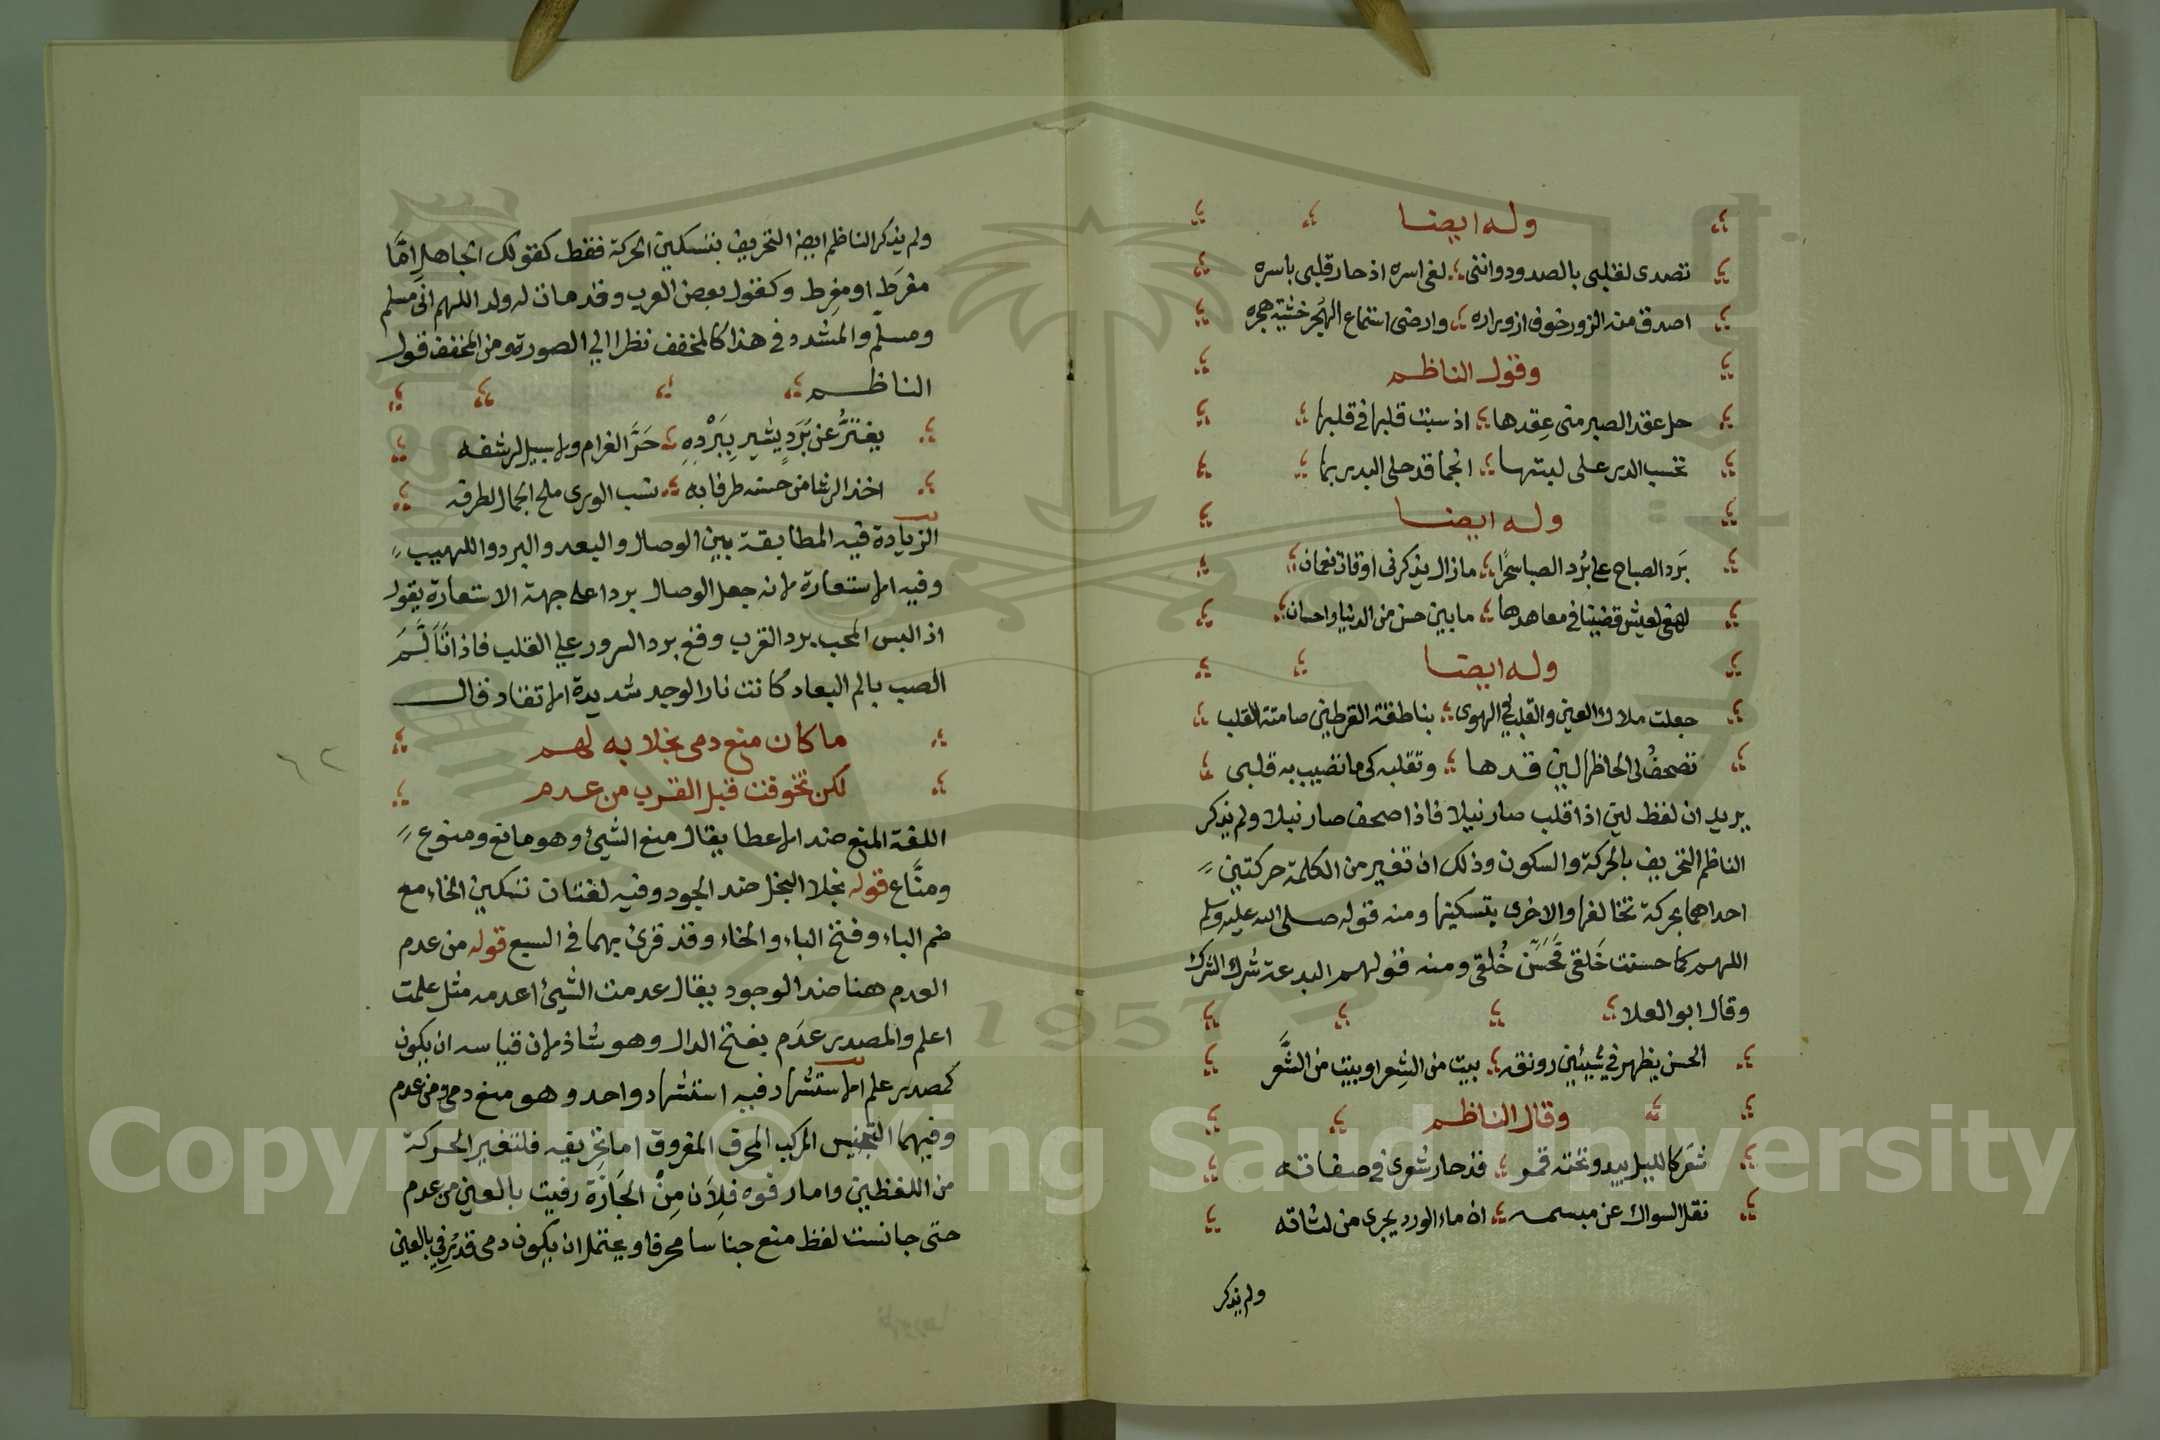 وله ايضا
تصدى لقلبى بالصدود وانثنى لفى اسره اذ حار قلبى باسره
اصدق منه الزور خوف ازوراره وارضى استماع الهجر خشية هجره
وقول الناظم
حل عقد الصبر منى عقدها اذ سبت قلبا فى قلبها
تحسب الدر على لبتها انجما قد حلى البدر بها
وله ايضا
بَرد الصباح على بُرد الصبا سحرًا ما زال يذكرنى اوقات نعمان
لهفى لعيش قضينا فى معاهدها ما بين حسن من الدنيا واحسان
وله ايضا
جعلت ملاك العين والقلب فى الهوى بناطقة القرطين صامتة القلب
تصحف لى الحاظها لين قدها وتقلبه كى ما تصيب به قلبى
يريد ان لفظ لين اذا قلب صار نيلا فاذا صحف صار نبلا ولم يذكر
الناظم التحريف بالحركة والسكون وذلك ان تغير من الكلمة حركتين
احداهما بحركة تخالفها والاخرى بتسكينها ومنه قوله صلى الله عليه وسلم
اللهم كما حسنت خَلقى فَحَسِّن خُلقى ومنه قولهم البدعة شرك الشرك
وقال ابو العلا
الحسن يظهر فى شيئين رونقه بيت من الشِعر او بيت من الشَّعر
وقال الناظم
شَعر كالليل يبدو تحته قمر قد حار شعرى فى صفاته
نقل السواك عن مبسمه ان ماء الورد يجرى من لثاته
ولم يذكر
ولم يذكر الناظم ايضا التحريف بتسكين الحركة فقط كقولك الجاهل اِمَّا
مفْرَط او مفرِط وكقول بعض العرب وقد مات له ولد اللهم انى مسلم
ومسلّم والمشدد فى هذا كالمخفف نظرا الى الصورة ومن المخفف قول
الناظم
يفتَرُّ عن بَرَدٍ يشير بِبَرْدِهِ حَرَّ الغرام ولا سبيل لرشفه
اخذ الرشا من حسنه طرفا به نسب الورى ملح الجمال لطرفه
الزيادة فيه المطابقة بين الوصال والبعد والبرد واللهيب
وفيه الاستعارة لانه جعل الوصال بردا على جهة الاستعارة يقول
اذ البس المحب برد القرب وقع برد السرور على القلب فاذا تَأَلَّمَ
الصب بالم البعاد كانت نار الوجد شديدة الاتقاد قال
ما كان منع دمى بخلا به لهم
لكن تخوفت قبل القرب من عدم
اللغة المنع ضد الاعطا يقال منع الشيئ وهو مانع ومنوع
ومنَّاع قوله بخلا البخل ضد الجود وفيه لغتان تسكين الخاء مع
ضم الباء وفتح الباء والخاء وقد قرئ بهما فى السبع قوله من عدم
العدم هنا ضد الوجود يقال عدمت الشيئ اعدمه مثل علمت
اعلم والمصدر عدَم بفتح الدال وهو شاذ لان قياسه ان يكون
كمصدر علم الاستشهاد فيه استشهاد واحد وهو منع دمى ومن عدم
وفيهما التجنيس المركب المحرف المفروق اما تحريفه فلتغير الحركة
من اللفظين واما رفوه فلِاَن مِنْ الجَارَّة رفيت بالعين من عدم
حتى جانست لفظ منع جناسا محرفا ويحتمل ان يكون دمى قد رُفِى بالعين
٦٢